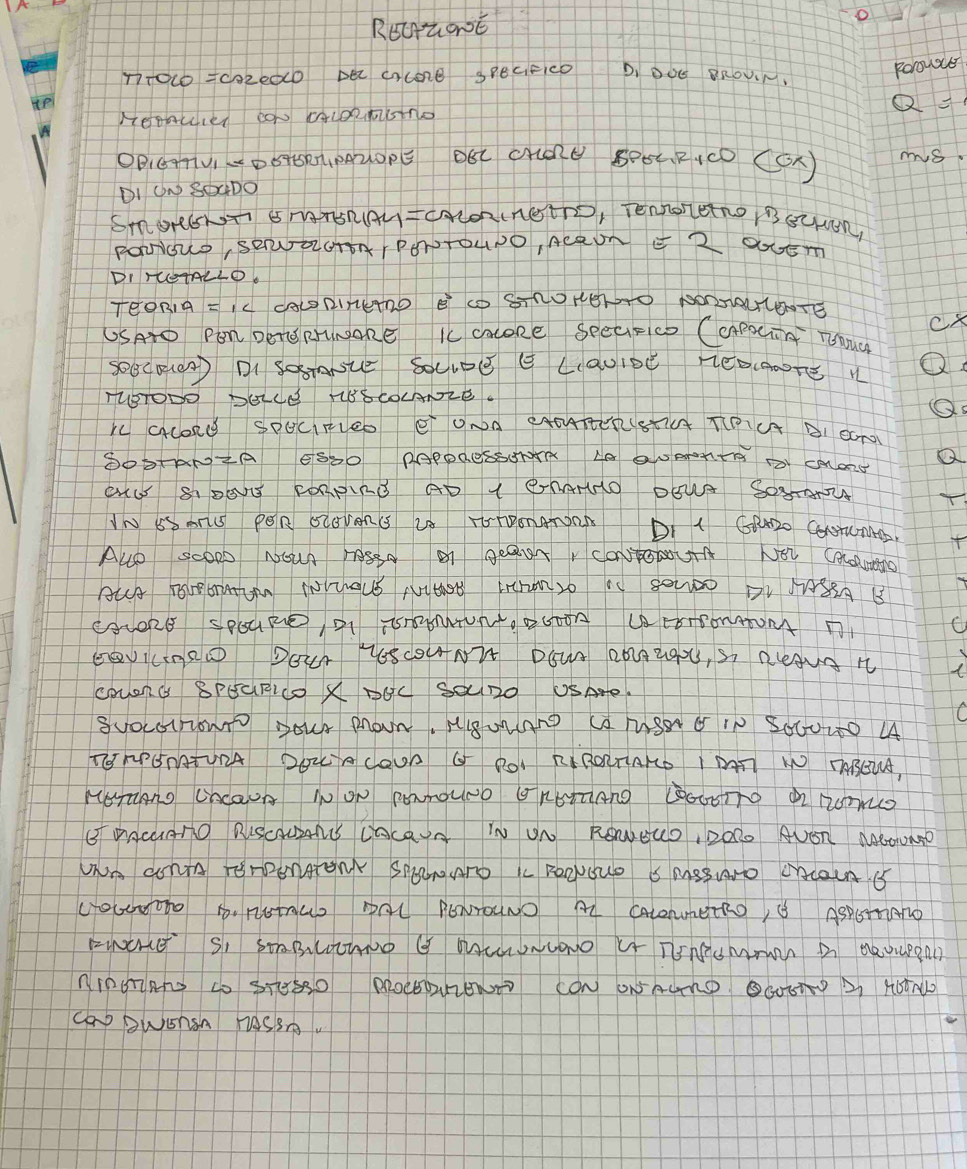 RELAZIONE
TITOLO = CALCOLO DEL CALORE SPECIFICO DI DUE PROVINI
METALLICI CON CALORIMETRO
OBIETTIVI = DETERMINAZIONE DEL CALORE SPECIFICO (CX)
DI UN SOLIDO
STRUMENTI E MATERIALI = CALORIMETRO, TERMOMETRO, BECHER,
FORNELLO, SERPENTINA, PENTOLINO, ACQUA E 2 OGGETTI
DI METALLO.
TEORIA = IL CALORIMETRO È LO STRUMENTO NORMALMENTE
USATO PER DETERMINARE IL CALORE SPECIFICO (CAPACITÀ TERMICA
SPECIFICA) DI SOSTANZE SOLIDE E LIQUIDE MEDIANTE IL
METODO DELLE MESCOLANZE.
IL CALORE SPECIFICO È UNA CARATTERISTICA TIPICA DI OGNI
SOSTANZA ESSO RAPPRESENTA LA QUANTITÀ DI CALORE
CHE SI DEVE FORNIRE AD 1 GRAMMO DELLA SOSTANZA
IN ESAME PER ELEVARE LA TEMPERATURA DI 1 GRADO CENTIGRADO.
ALLO SCOPO NELLA MASSA DI ACQUA, CONTENUTA NEL CALORIMETRO
ALLA TEMPERATURA INIZIALE, VIENE IMMERSO IL SOLIDO DI MASSA E
CALORE SPECIFICO, DI TEMPERATURA, DETTA LA TEMPERATURA DI
EQUILIBRIO DELLA MESCOLANZA DELLA RELAZIONE, SI RICAVA IL
CALORE SPECIFICO X DEL SOLIDO USATO.
SVOLGIMENTO DELLA PROVA. MISURIAMO LA MASSA E IN SEGUITO LA
TEMPERATURA DELL'ACQUA E POI RIPORTIAMO I DATI IN TABELLA,
METTIAMO L'ACQUA IN UN PENTOLINO E METTIAMO L'OGGETTO DI METALLO
E FACCIAMO RISCALDARE L'ACQUA IN UN FORNELLO, DOPO AVER RAGGIUNTO
UNA CERTA TEMPERATURA SPEGNIAMO IL FORNELLO E PASSIAMO L'ACQUA E
L'OGGETTO DI METALLO DAL PENTOLINO AL CALORIMETRO, E ASPETTIAMO
FINCHÉ SI STABILIZZANO E RAGGIUNGONO LA TEMPERATURA DI EQUILIBRIO
RIPETIAMO LO STESSO PROCEDIMENTO CON UN ALTRO OGGETTO DI METALLO
CON DIVERSA MASSA.
FORMULE
Q =